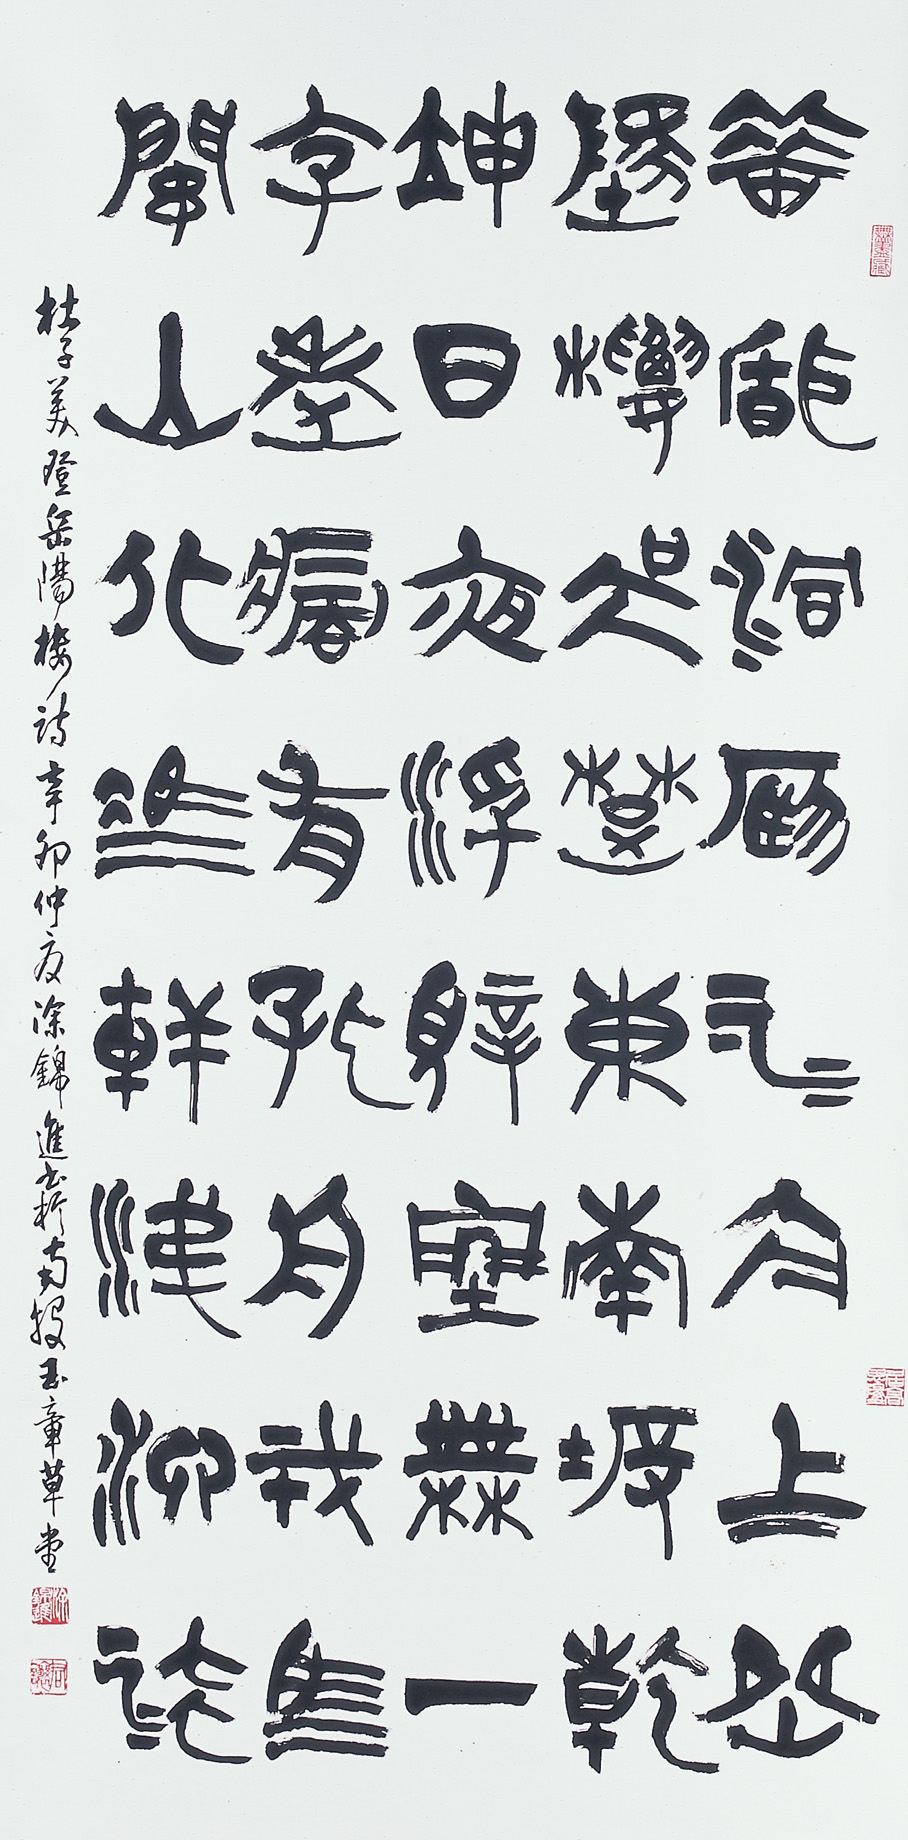 昔聞洞庭水今上岳
陽樓吳楚東南坼乾
坤日夜浮親朋無一
字老病有孤舟戎馬
關山北憑軒涕泗流
杜子美登岳陽樓詩辛卯仲夏涂錦進書於南投玉章草堂